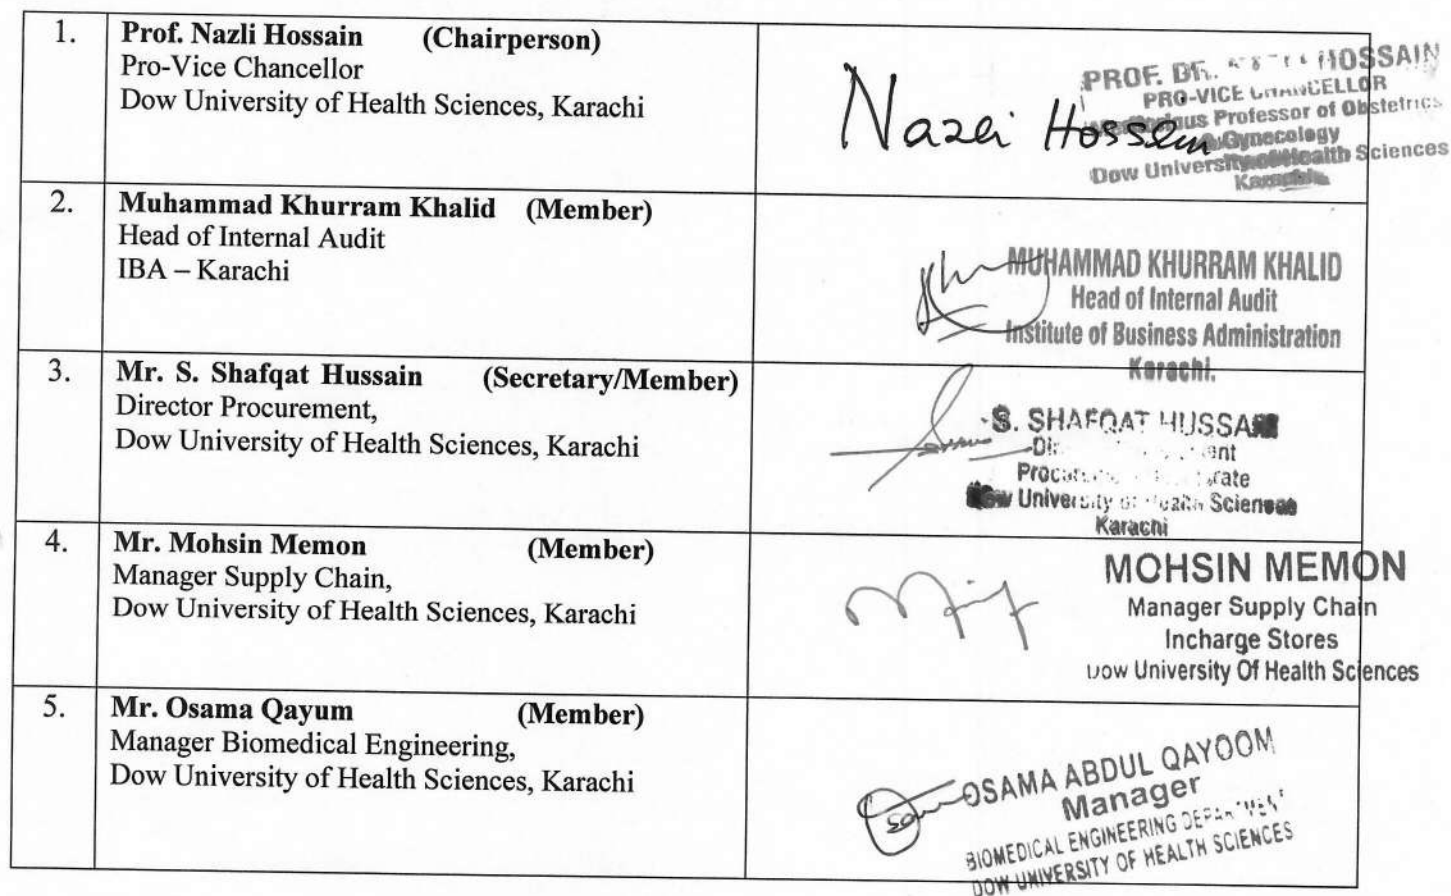 1. Prof. Nazli Hossain (Chairperson)
Pro-Vice Chancellor
Dow University of Health Sciences, Karachi
Nazli Hossain
PROF. DR. HOSSAIN
PRO-VICE CHANCELLOR
Professor of Obstetrics
Gynecology
Dow University of Health Sciences
Karachi
2. Muhammad Khurram Khalid (Member)
Head of Internal Audit
IBA – Karachi
MUHAMMAD KHURRAM KHALID
Head of Internal Audit
Institute of Business Administration
Karachi.
3. Mr. S. Shafqat Hussain (Secretary/Member)
Director Procurement,
Dow University of Health Sciences, Karachi
S. SHAFQAT HUSSAIN
Dow University of Health Sciences
Karachi
4. Mr. Mohsin Memon (Member)
Manager Supply Chain,
Dow University of Health Sciences, Karachi
MOHSIN MEMON
Manager Supply Chain
Incharge Stores
Dow University Of Health Sciences
5. Mr. Osama Qayum (Member)
Manager Biomedical Engineering,
Dow University of Health Sciences, Karachi
OSAMA ABDUL QAYOOM
Manager
BIOMEDICAL ENGINEERING DEPARTMENT
DOW UNIVERSITY OF HEALTH SCIENCES